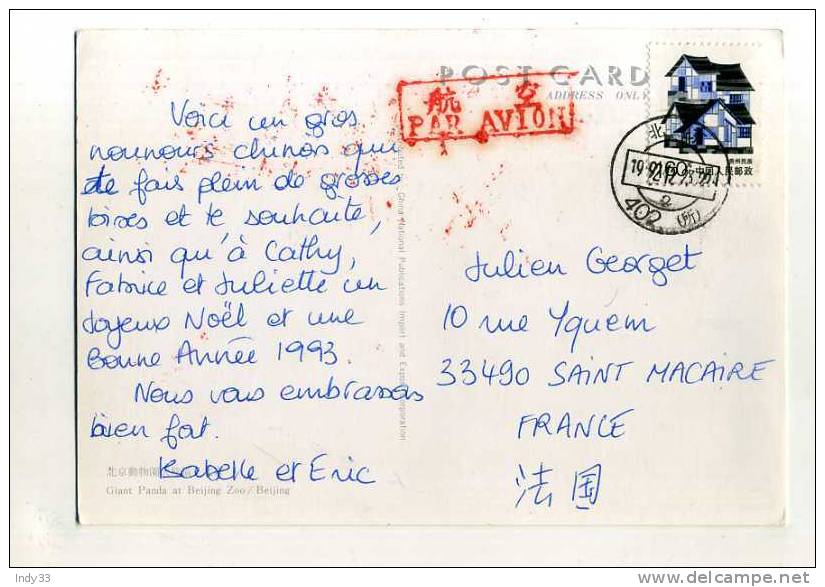 POST CARD
ADDRESS ONLY
航 空
PAR AVION
北
中国人民邮政
402
(所)
Voici un gros
nounours chinois qui
te fais plein de grosses
bises et te souhaite,
ainsi qu'à Cathy,
Fabrice et Juliette un
Joyeux Noël et une
Bonne Année 1993.
Nous vous embrassons
bien fort.
Isabelle et Eric
Julien Georget
10 rue Yquem
33490 SAINT MACAIRE
FRANCE
法国
China National Publications Import and Export Corporation
北京動物園
Giant Panda at Beijing Zoo/Beijing
Indy33
delcampe.net